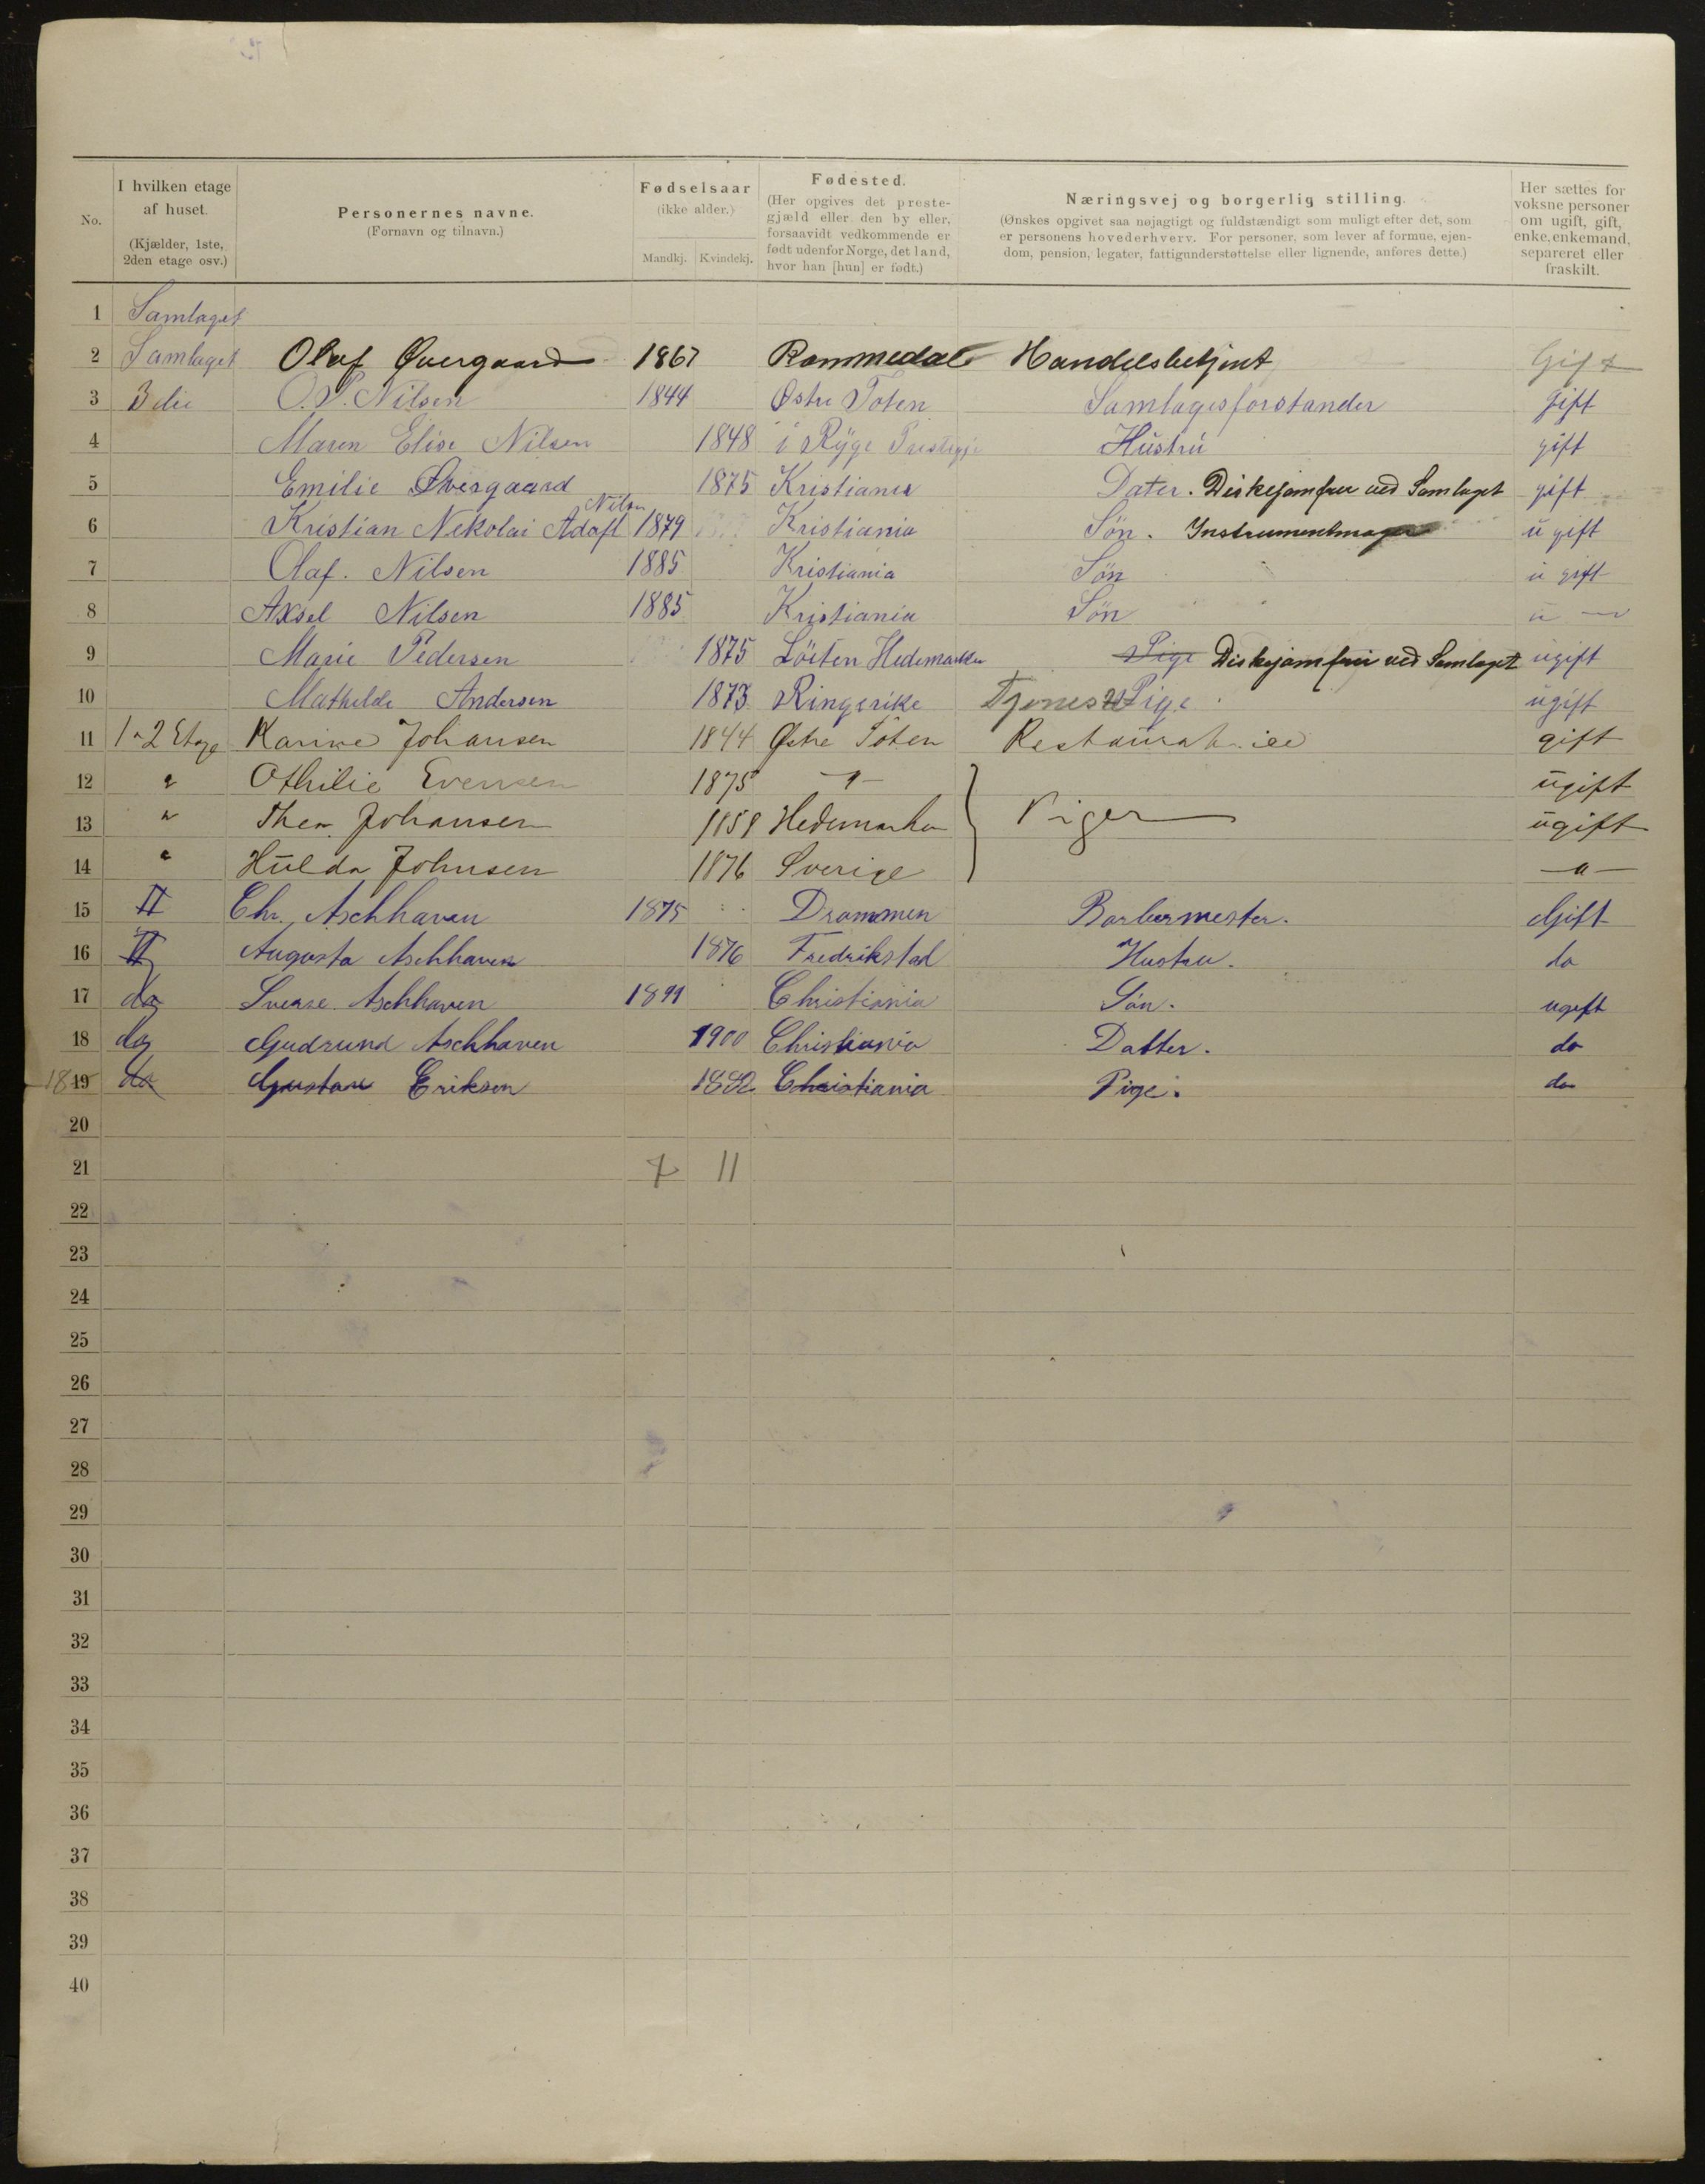 No.
I hvilken etage af huset. (Kjælder, 1ste, 2den etage osv.)
Personernes navne. (Fornavn og tilnavn.)
Fødselsaar (ikke alder.)
Mandkj. Kvindekj.
Fødested. (Her opgives det prestegjæld eller den by eller, forsaavidt vedkommende er født udenfor Norge, det land, hvor han [hun] er født.)
Næringsvej og borgerlig stilling. (Ønskes opgivet saa nøjagtigt og fuldstændigt som muligt efter det, som er personens hovederhverv. For personer, som lever af formue, ejendom, pension, legater, fattigunderstøttelse eller lignende, anføres dette.)
Her sættes for voksne personer om ugift, gift, enke, enkemand, separeret eller fraskilt.
1 Samlaget
2 Samlaget Olaf Øvergaard 1867 Rommedal Handelsbetjent Gift
3 O. P. Nilsen 1844 Østre Toten Samlagsforstander gift
4 Maren Elise Nilsen 1848 i Rÿge Hüstrü gift
5 Emilie Øvergaard 1875 Kristiania Dater. Diskejomfru ved Samlaget gift
6 Kristian Nekolai Adolf Nilsen 1879 Kristiania Søn. Instrumentmager ügift
7 Olaf. Nilsen 1885 Kristiania Søn ü gift
8 Axsel Nilsen 1885 Kristiania Søn
9 Marie Pedersen 1875 Löiten Hedemarken Pige Diskejomfru ved Samlaget ügift
10 Mathilde Andersen 1873 Ringerike Tjenestepige ügift
11 1 & 2 Etage Karine Johansen 1844 Østre Toten gift
12 " Othilie Evensen 1875 — " — ügift
13 " Thea Johansen Hedemarken Piger ügift
14 " Hülda Johnsen 1876 Sverige — " —
15 II Chr. Aschhaven 1875 Drammen Barbermester. Gift
16 II Augusta Aschhaven 1876 Fredrikstad Hustru. do
17 do Sverre Aschhaven 1899 Christiania Søn. ugift
18 do Gudrund Aschhaven 1900 Christiania Datter. do
18 19 do Eriksen 1882 Christiania Pige. do
20
21 7 11
22
23
24
25
26
27
28
29
30
31
32
33
34
35
36
37
38
39
40